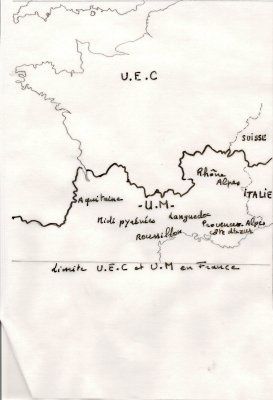 U.E.C
SUISSE
Rhône
Alpes
ITALIE
Aquitaine
-U.M-
Midi pyrénées
Languedoc
Roussillon
Provence Alpes
côte d'azur
Limite U.E.C et U.M en France